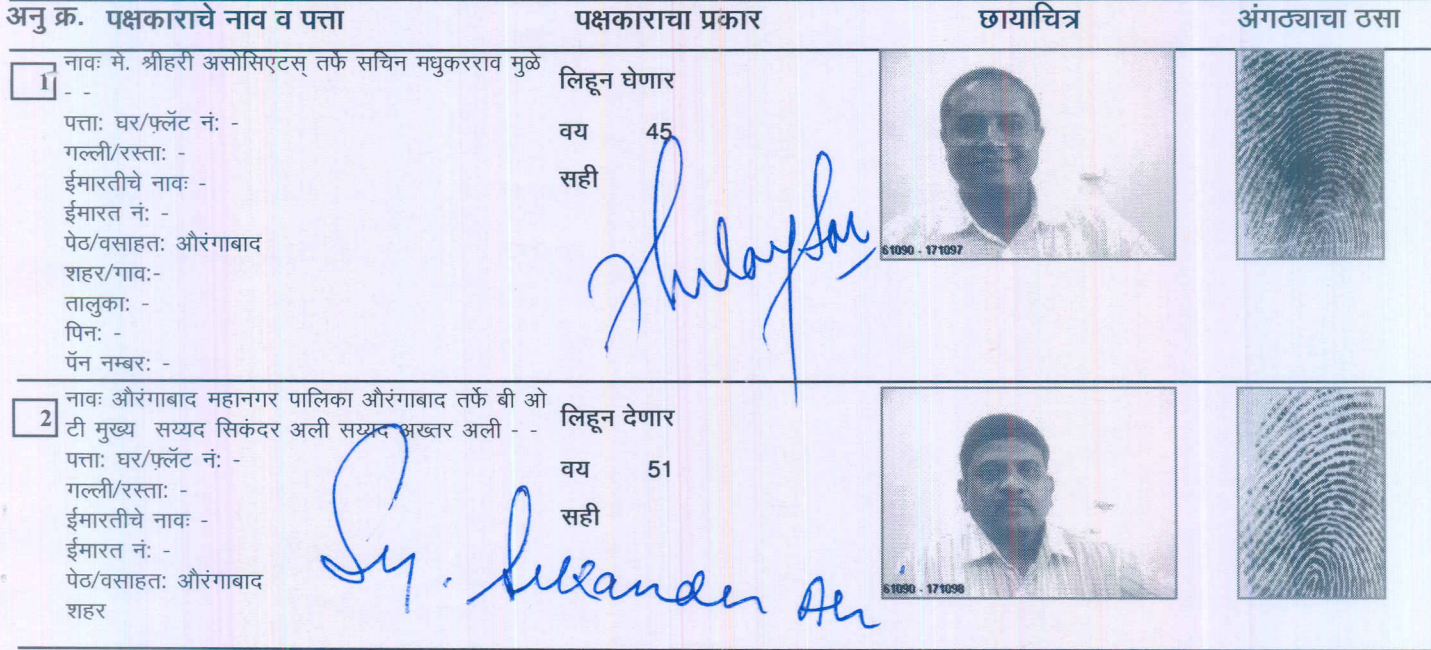 अनु क्र. पक्षकाराचे नाव व पत्ता पक्षकाराचा प्रकार छायाचित्र अंगठ्याचा ठसा
1 नावः मे. श्रीहरी असोसिएटस् तर्फे सचिन मधुकरराव मुळे लिहून घेणार
- -
पत्ता: घर/फ्लॅट नं: - वय 45
गल्ली/रस्ता: -
ईमारतीचे नावः - सही
ईमारत नं: -
पेठ/वसाहत: औरंगाबाद
शहर/गाव:-
तालुका: -
पिन: -
पॅन नम्बर: -
61090 - 171097
2 नावः औरंगाबाद महानगर पालिका औरंगाबाद तर्फे बी ओ लिहून देणार
टी मुख्य सय्यद सिकंदर अली सय्यद अख्तर अली - -
पत्ता: घर/फ्लॅट नं: - वय 51
गल्ली/रस्ता: -
ईमारतीचे नावः - सही
ईमारत नं: -
पेठ/वसाहत: औरंगाबाद
शहर
Sy. Sikander Ali
61090 - 171098